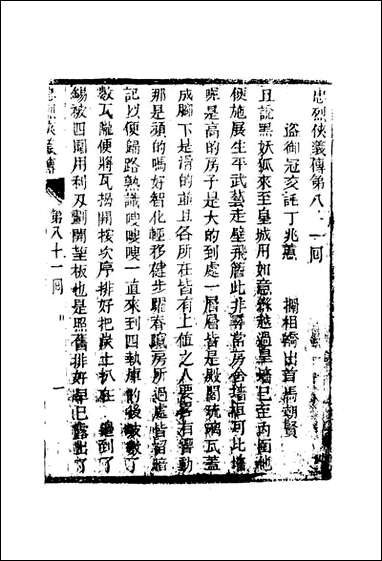 忠烈俠義傳第八十一回
盜御冠交託丁兆蕙　攔相轎出首馬朝賢
且說黑妖狐來至皇城用如意絛越過皇墻已至內圍他
便施展生平武藝走壁飛簷此非尋常房舍墻垣可比墻
呢是高的房子是大的到處一層層皆是殿閣琉璃瓦蓋
成腳下是滑的並且各所在皆有上值之人要畧有響動
那是頑的嗎好智化輕移健步躍脊竄房所過處皆留暗
記以便歸路熟識嗖嗖嗖一直來到四執庫的後坡數了
數瓦隴便將瓦揭開按次序排好把灰土扒在一邊到了
錫被四圍用利刃劃開望板也是照舊排好早已露出了
忠烈俠義傳
第八十一回
一